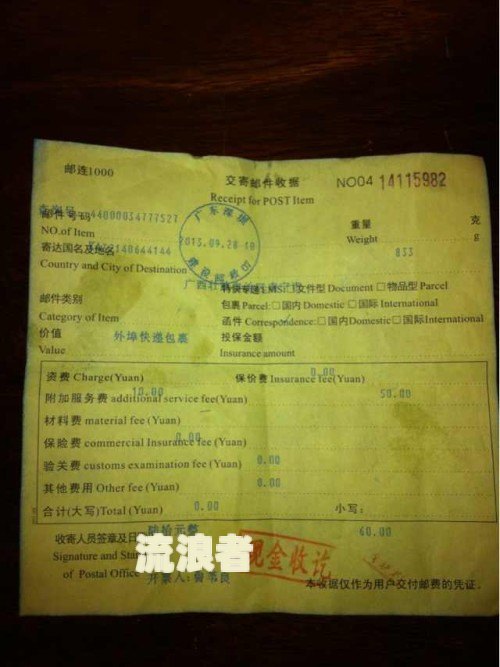 邮连1000
交寄邮件收据
NO04 14115982
Receipt for POST Item
邮件号码
NO.of Item
广东深圳
2013.09.28 10
重量
Weight
833
克
g
寄达国名及地名
Country and City of Destination
广西
特快专递EMS:□文件型 Document □物品型 Parcel
包裹 Parcel:□国内 Domestic □国际 International
函件 Correspondence:□国内Domestic□国际 International
邮件类别
Category of Item
价值
Value
外埠快递包裹
投保金额
Insurance amount
资费 Charge(Yuan)
保价费 Insurance fee(Yuan)
0.00
附加服务费 additional service fee(Yuan)
10.00
50.00
材料费 material fee (Yuan)
保险费 commercial Insurance fee (Yuan)
0.00
验关费 customs examination fee (Yuan)
0.00
其他费用 Other fee (Yuan)
0.00
合计(大写)Total (Yuan)
0.00
小写:
陆拾元整
60.00
收寄人员签章及日
Signature and
of Postal Office
流浪者
现金收讫
开票人:
本收据仅作为用户交付邮费的凭证.